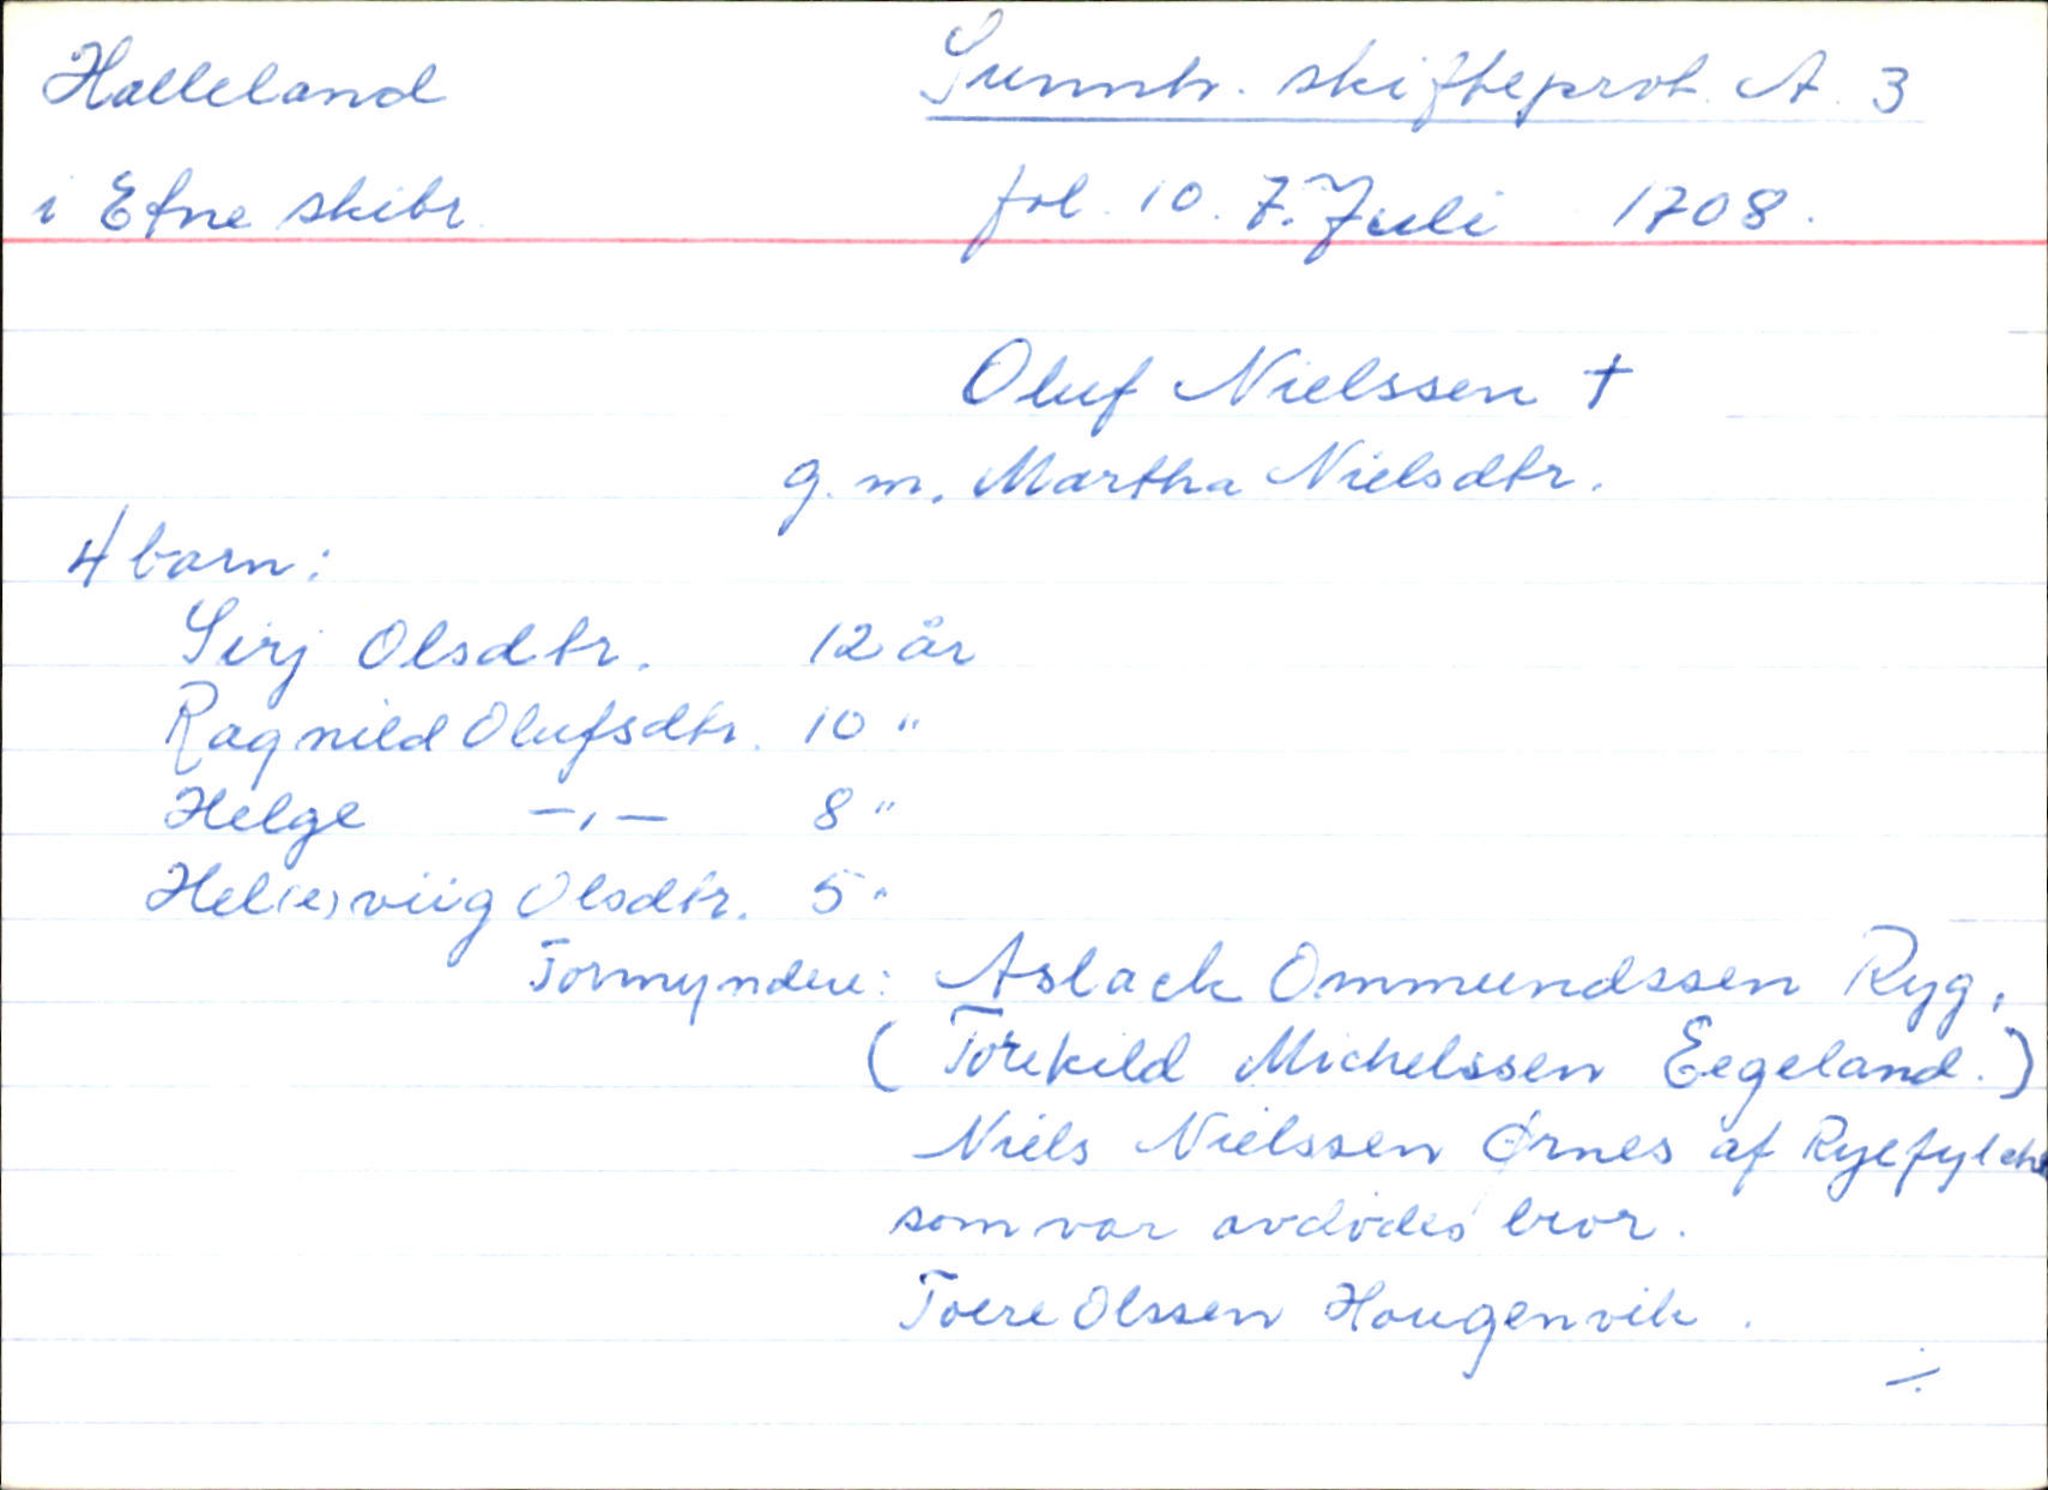 Halleland
Sunnh. skifteprot. A. 3
i Etne skibr.
fol. 10. 7. Juli 1708.
Oluf Nielssen †
g. m. Martha Nielsdtr.
4 barn:
Sirj Olsdtr. 12 år
Ragnild Olufsdtr. 10 "
Helge -,- 8 "
Hel(e)viig Olsdtr. 5 "
Formyndere: Aslack Ommundssen Ryg,
(Torekild Michelssen Eegeland.)
Niels Nielssen Ørnes af Ryefylche
som var avdødes bror.
Toere Olssen Hougenvik.
./.